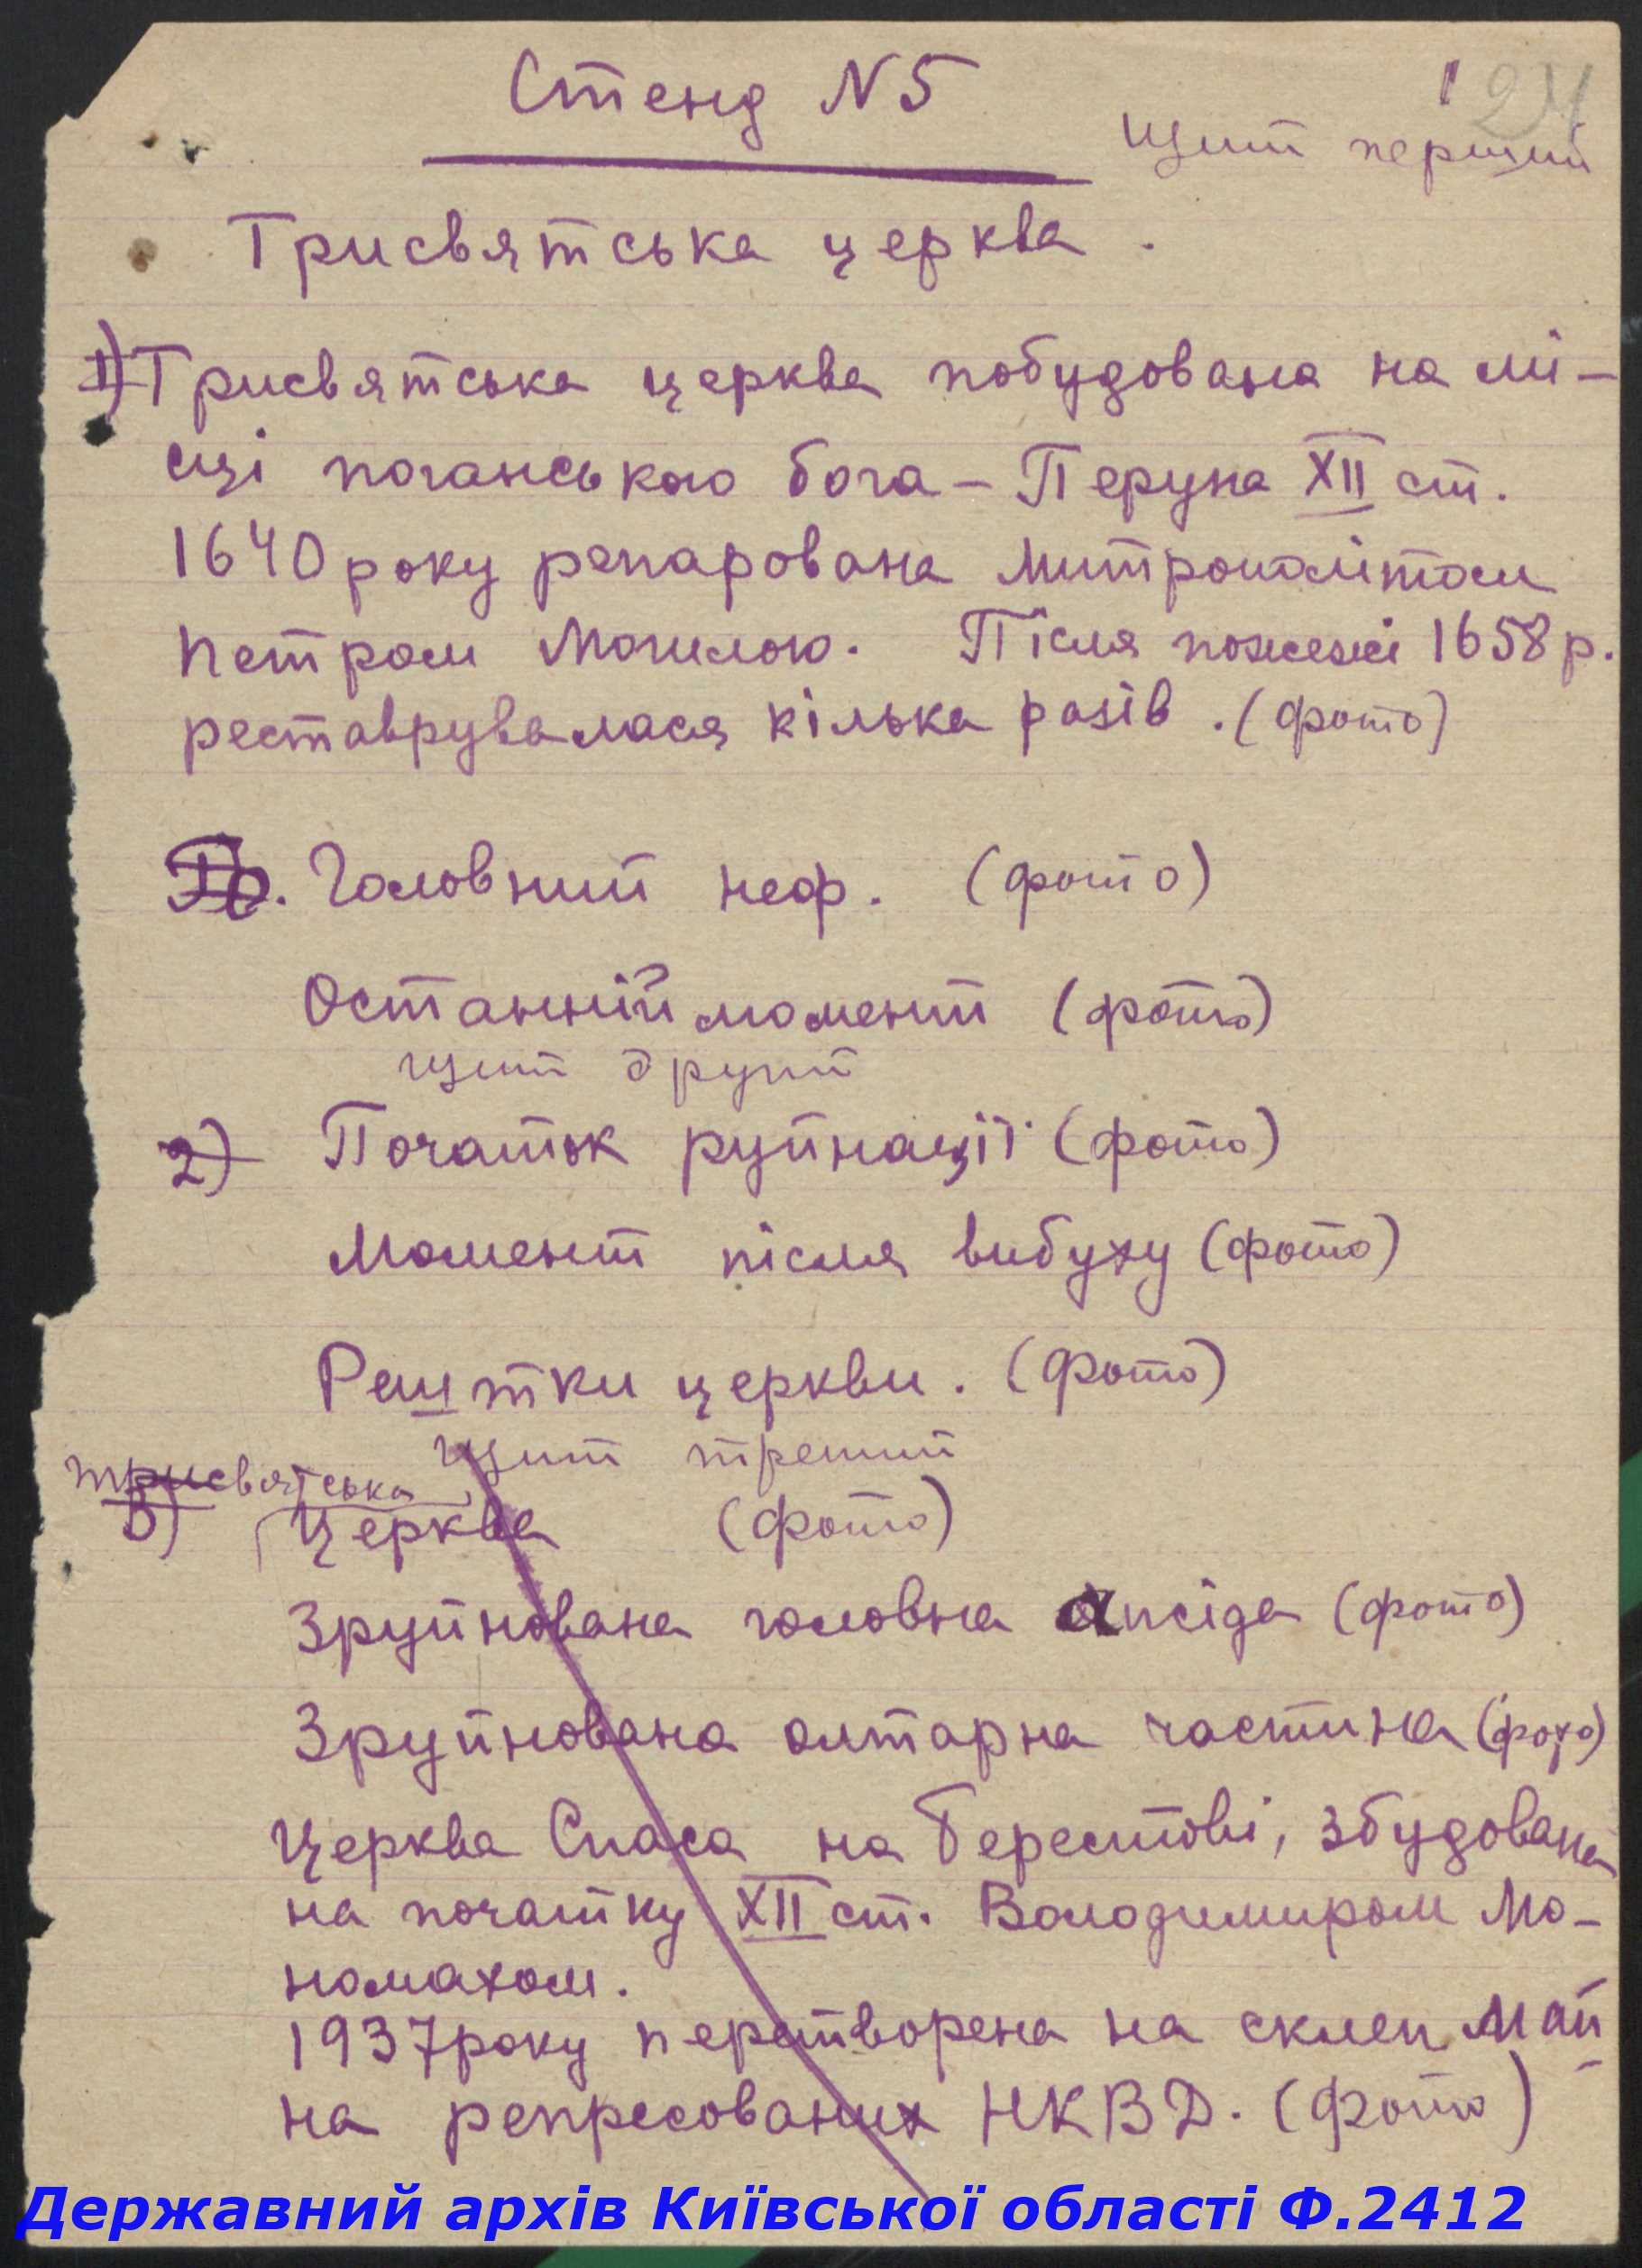 Стенд N5
1 24
Щит перший
Трисвятська церква.
1) Трисвятська церква побудована на мі-
сці поганського бога - Перуна XII ст.
1640 року репарована митрополітом
Петром Могилою. Після пожежі 1658 р.
реставрувалася кілька разів. (фото)
Головний неф. (фото)
Останній момент (фото)
Щит другий
2) Початок руйнації (фото)
Момент після вибуху (фото)
Рештки церкви. (фото)
Щит третий
трисвятська
3) Церква (фото)
Зруйнована головна апсіда (фото)
Зруйнована олтарна частина (фото)
Церква Спаса на Берестові, збудована
на початку XII ст. Володимиром Мо-
номахом.
1937 року перетворена на склеп май
на репресованих НКВД. (фото)
Державний архів Київської області Ф.2412